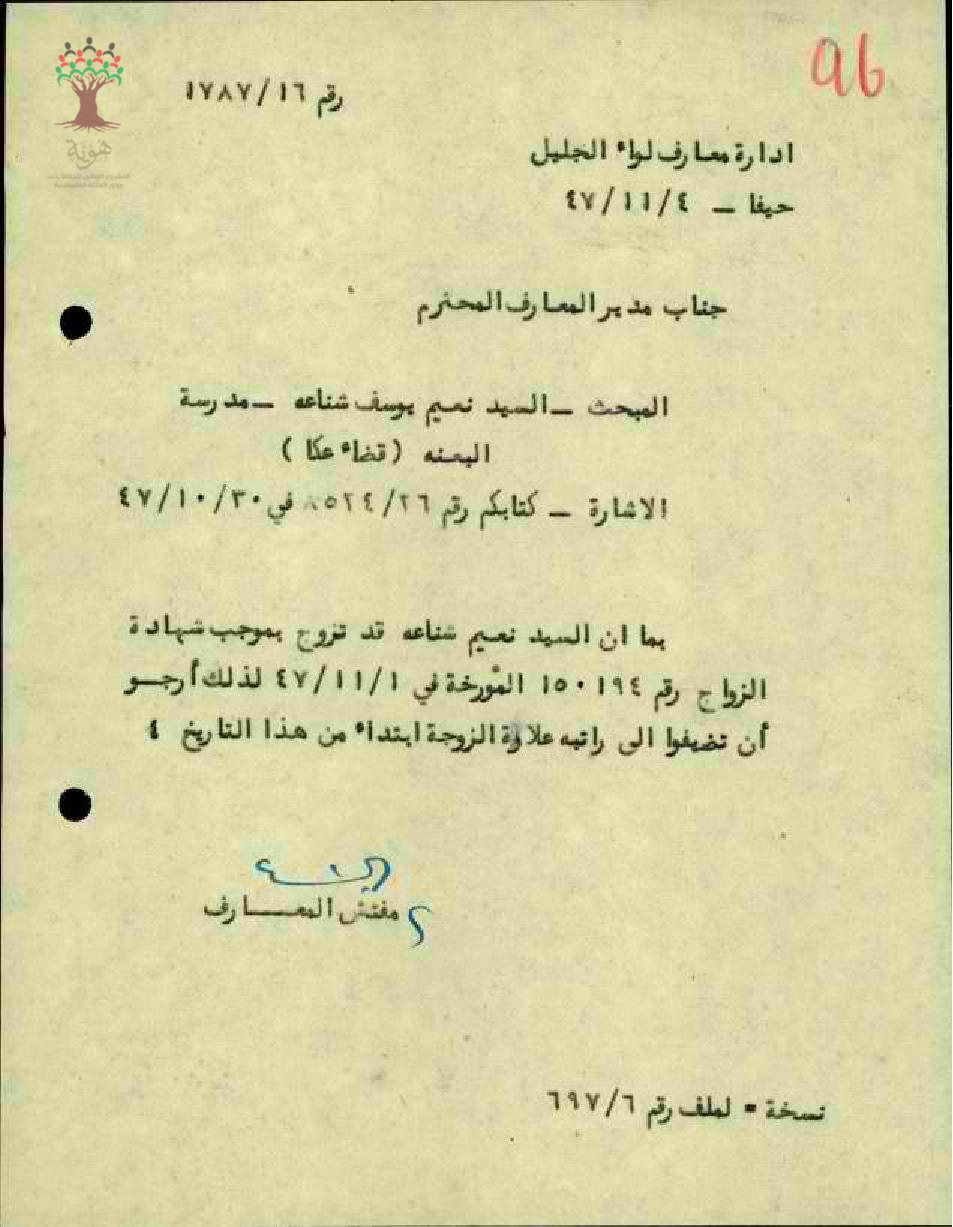 96
رقم ١٧٨٧/١٦
هوية
ادارة معارف لواء الجليل
حيفا – ٤٧/١١/٤
جناب مدير المعارف المحترم
المبحث – السيد نعيم يوسف شناعه – مدرسة
البعنه (قضاء عكا)
الاشارة – كتابكم رقم ٨٥٢٤/٢٦ في ٤٧/١٠/٣٠
بما ان السيد نعيم شناعه قد تزوج بموجب شهادة
الزواج رقم ١٥٠١٩٤ المؤرخة في ٤٧/١١/١ لذلك أرجو
أن تضيفوا الى راتبه علاوة الزوجة ابتداء من هذا التاريخ ٤
مفتش المعـــارف
نسخة = لملف رقم ٦٩٧/٦